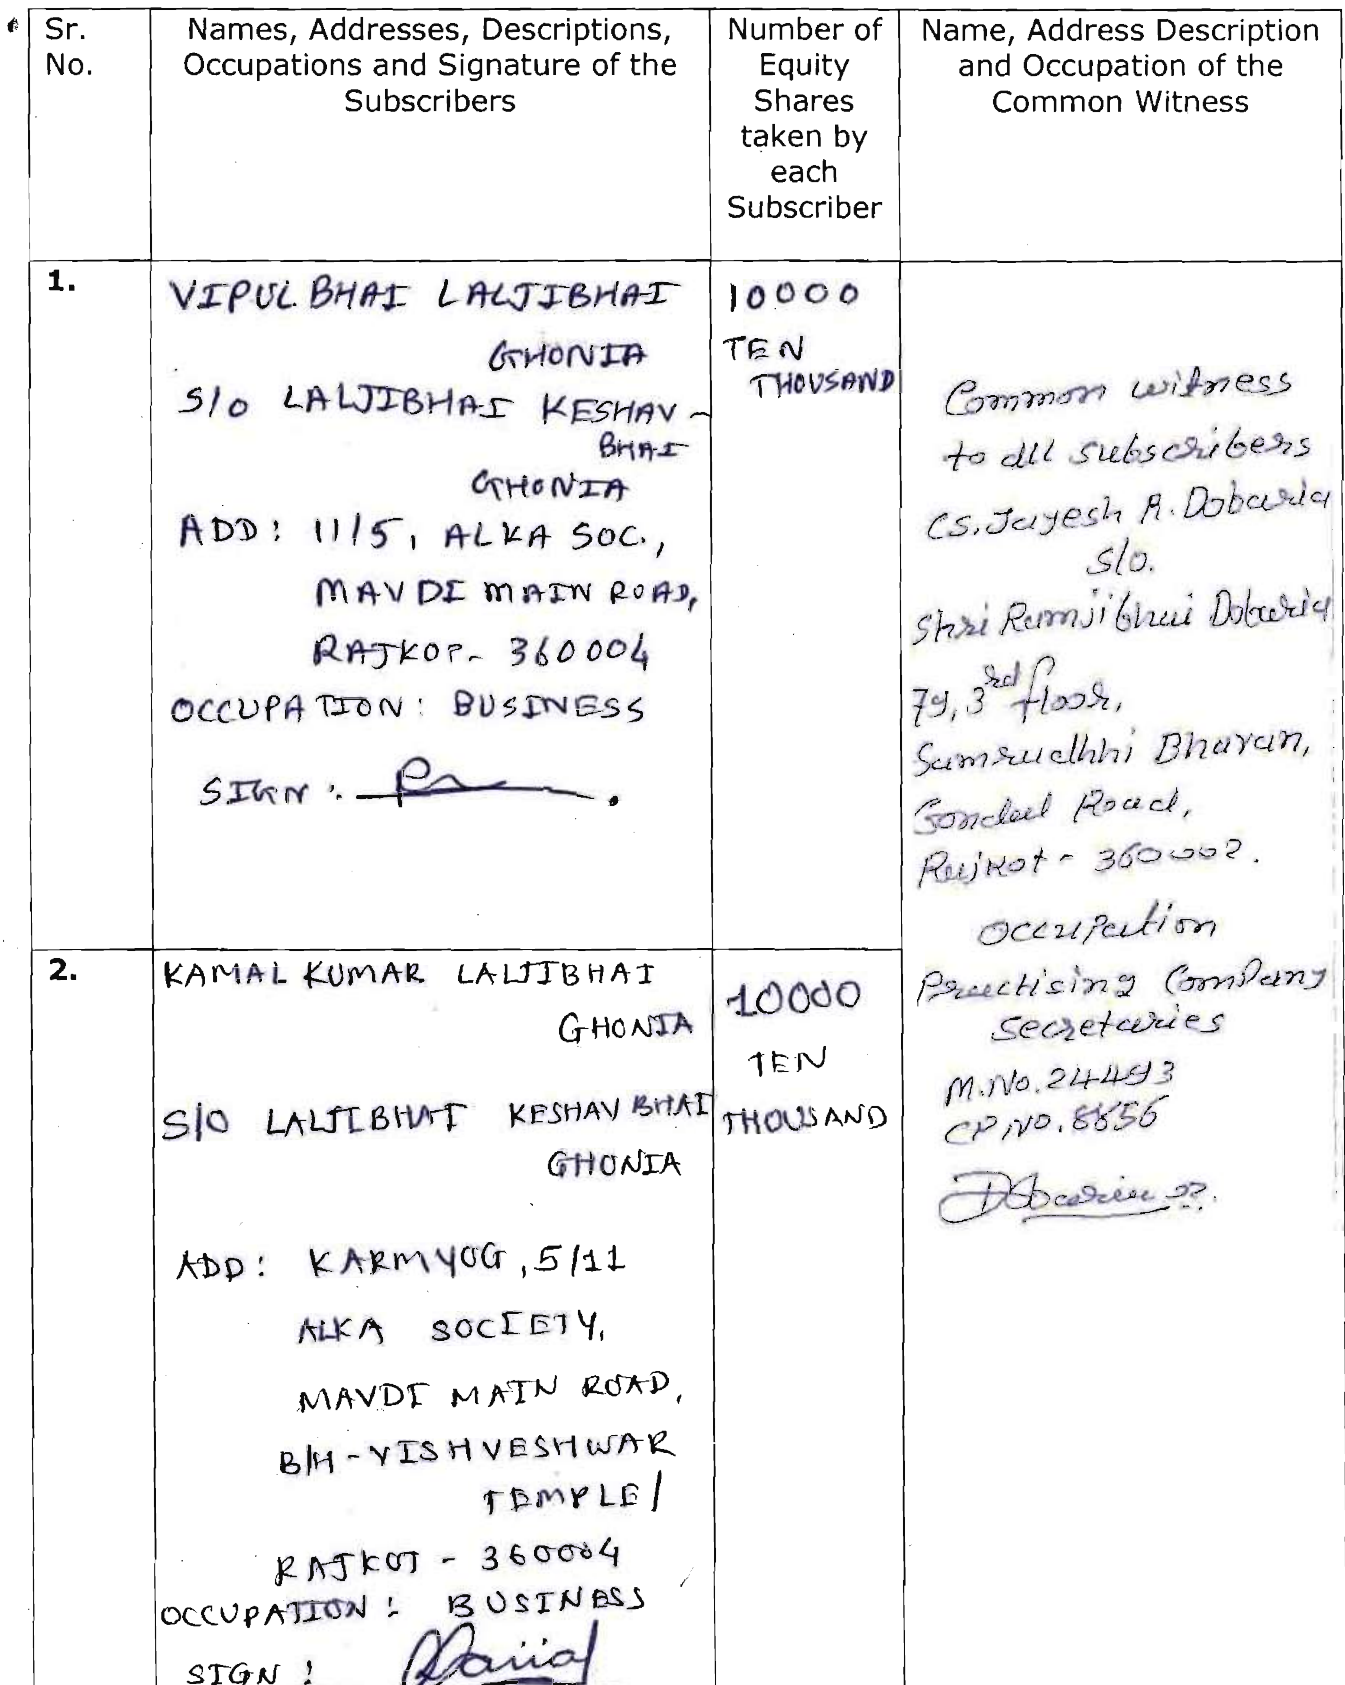 Sr.
No.
Names, Addresses, Descriptions,
Occupations and Signature of the
Subscribers
Number of
Equity
Shares
taken by
each
Subscriber
Name, Address Description
and Occupation of the
Common Witness
1.
VIPULBHAI LALJIBHAI
GHONIA
S/O LALJIBHAI KESHAV-
BHAI
GHONIA
ADD: 11/5, ALKA SOC.,
MAVDI MAIN ROAD,
RAJKOT- 360004
OCCUPATION: BUSINESS
SIGN:
10000
TEN
THOUSAND
Common witness
to all subscribers
CS. Jayesh R. Dobaria
S/o.
Shri Ramjibhai Dobaria
79, 3rd floor,
Samrudhhi Bhavan,
Gondal Road,
Rajkot - 360002.
Occupation
Practising Company
Secretaries
M.No. 24493
CP NO. 8656
2.
KAMALKUMAR LALJIBHAI
GHONIA
S/O LALJIBHAI KESHAVBHAI
GHONIA
ADD: KARMYOG, 5/11
ALKA SOCIETY,
MAVDI MAIN ROAD,
B/H-VISHVESHWAR
TEMPLE/
RAJKOT - 360004
OCCUPATION: BUSINESS
SIGN:
10000
TEN
THOUSAND